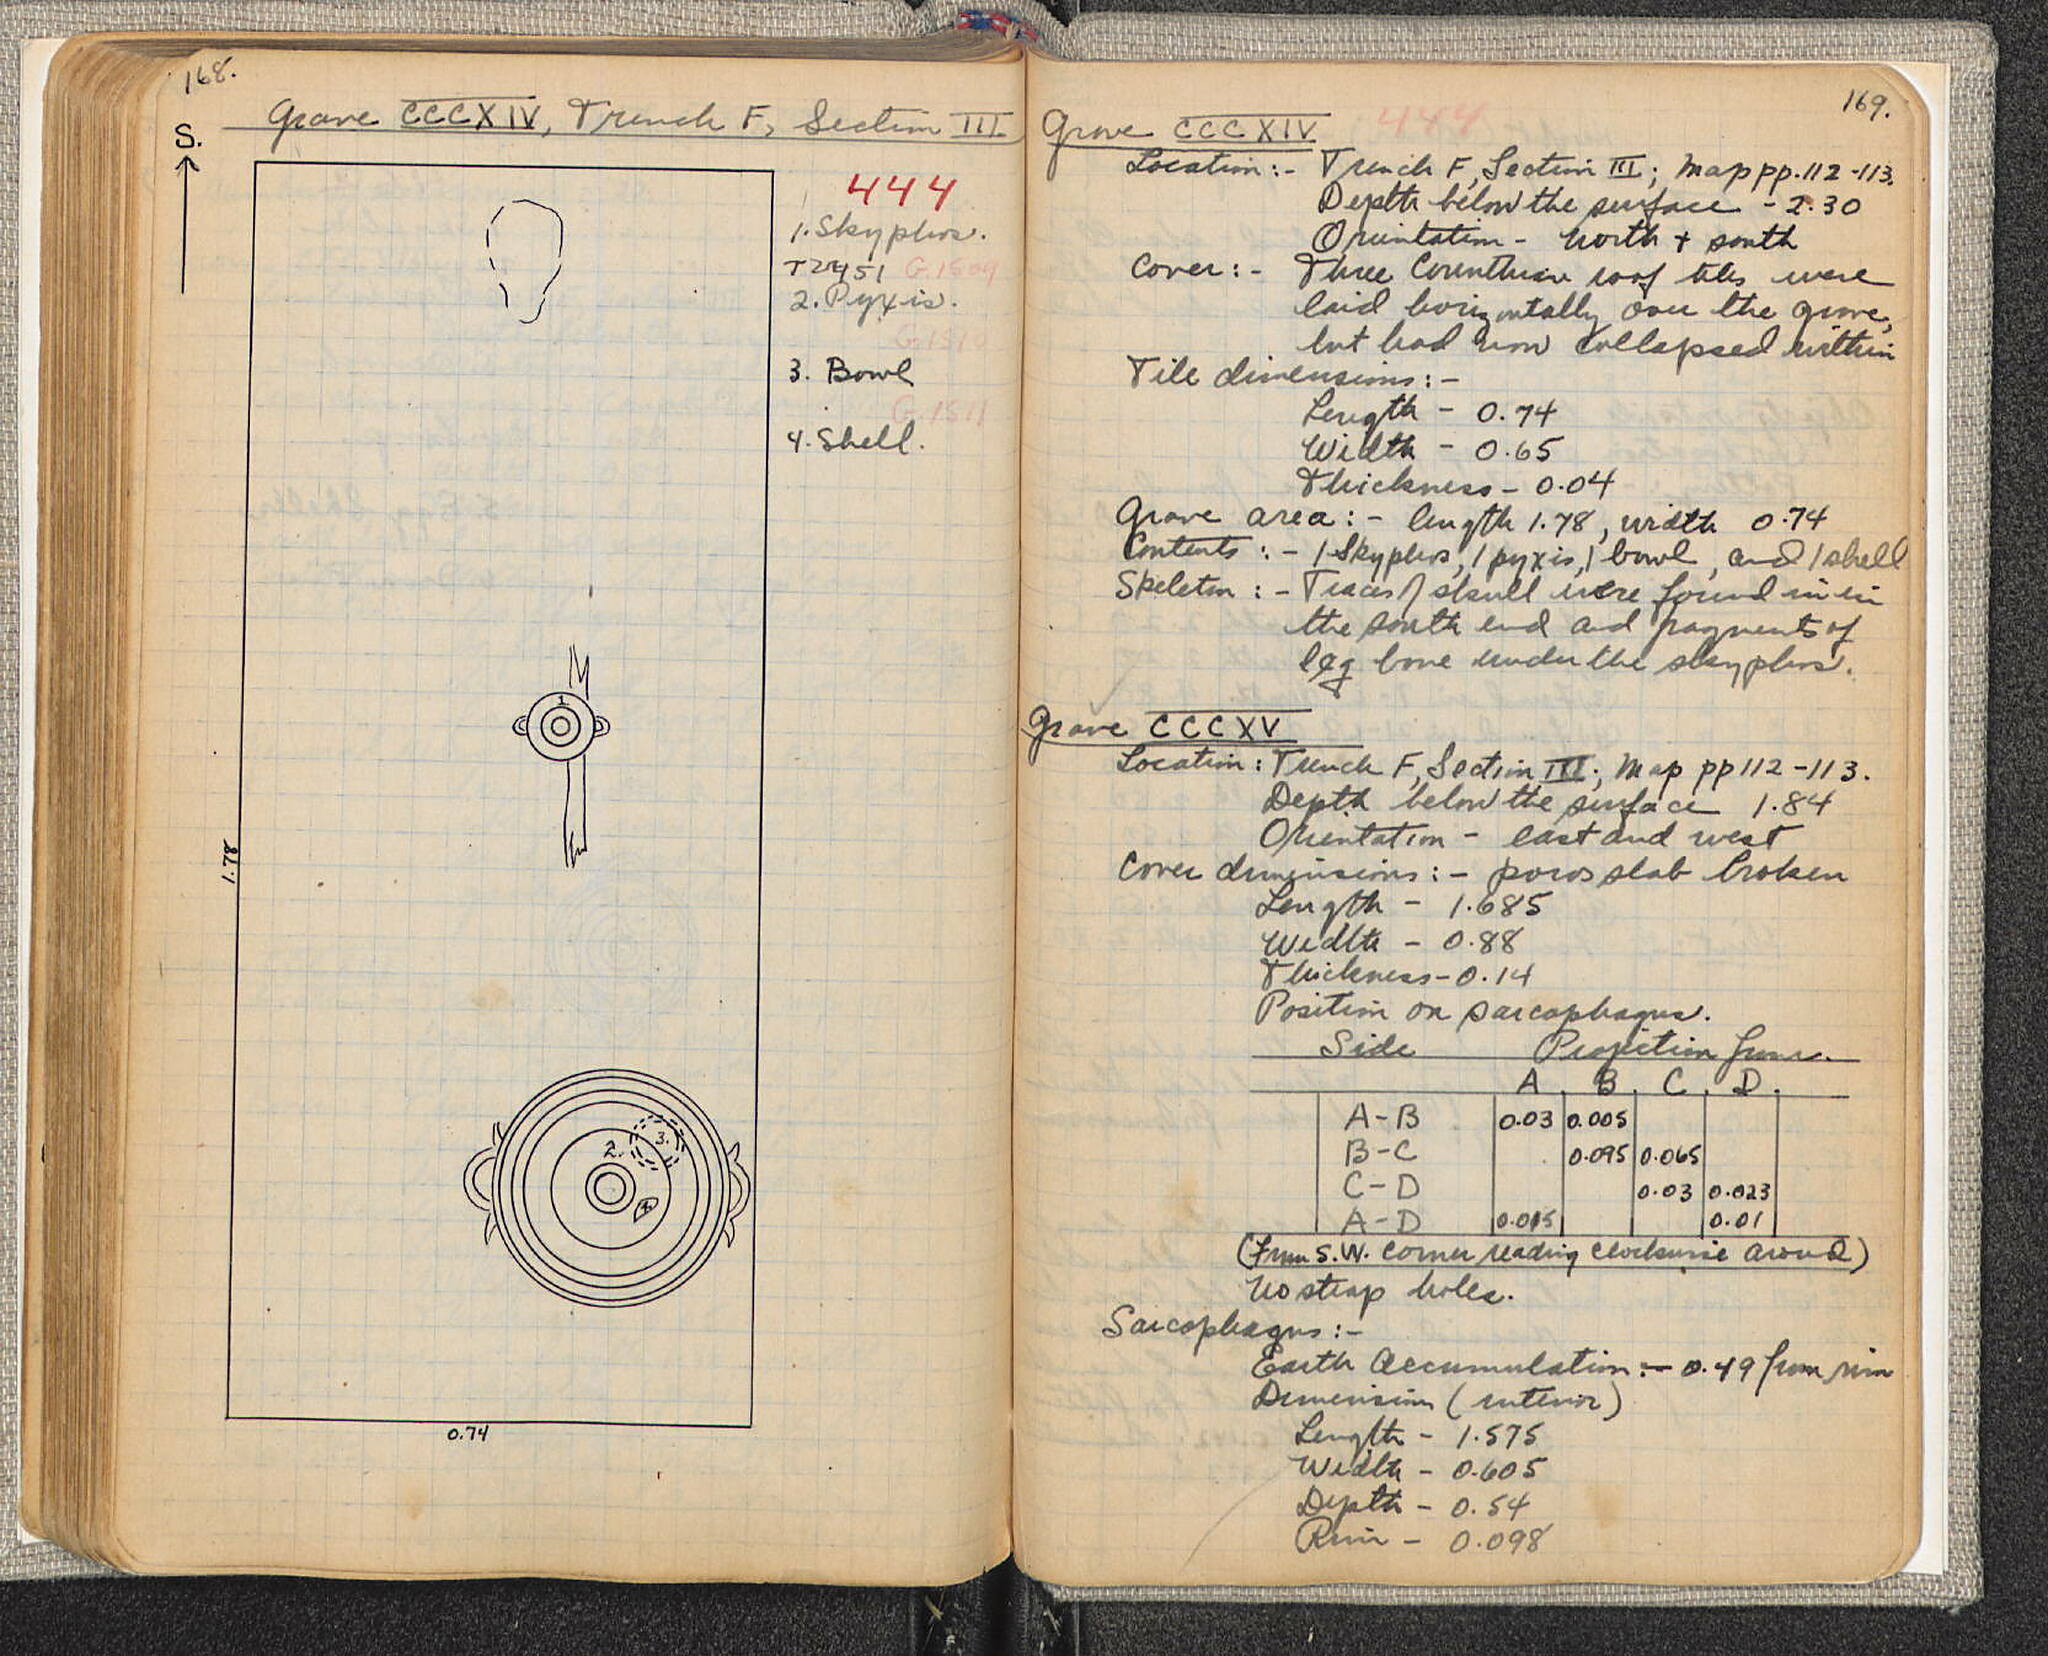 168.
Grave CCCXIV, Trench F, Section III
S.
444
1. Skyphos.
T2451 G.1509
2. Pyxis.
G.1510
3. Bowl
G.1511
4. Shell.
1
1.78
2.
3.
4
0.74
169.
Grave CCCXIV 444
Location:- Trench F, Section III; Map pp. 112-113.
Depth below the surface - 2.30
Orientation - North + south
Cover:- Three Corinthian roof tiles were
laid horizontally over the grave,
but had now collapsed within
Tile dimensions:-
Length - 0.74
Width - 0.65
Thickness - 0.04
Grave area:- length 1.78, width 0.74
Contents:- 1 Skyphos, 1 pyxis, 1 bowl, and 1 shell
Skeleton:- Traces of skull were found in in
the south end and fragments of
leg bone under the skyphos.
Grave CCCXV
Location: Trench F, Section III; Map pp 112-113.
Depth below the surface 1.84
Orientation - east and west
Cover dimensions:- poros slab broken
Length - 1.685
Width - 0.88
Thickness - 0.14
Position on sarcophagus.
Side Projection from.
A B C D.
A-B 0.03 0.005
B-C 0.095 0.065
C-D 0.03 0.023
A-D 0.015 0.01
(From S.W. corner reading clockwise around)
No strap holes.
Sarcophagus:-
Earth Accumulation:- 0.49 from rim
Dimension (interior)
Length - 1.575
Width - 0.605
Depth - 0.54
Rim - 0.098